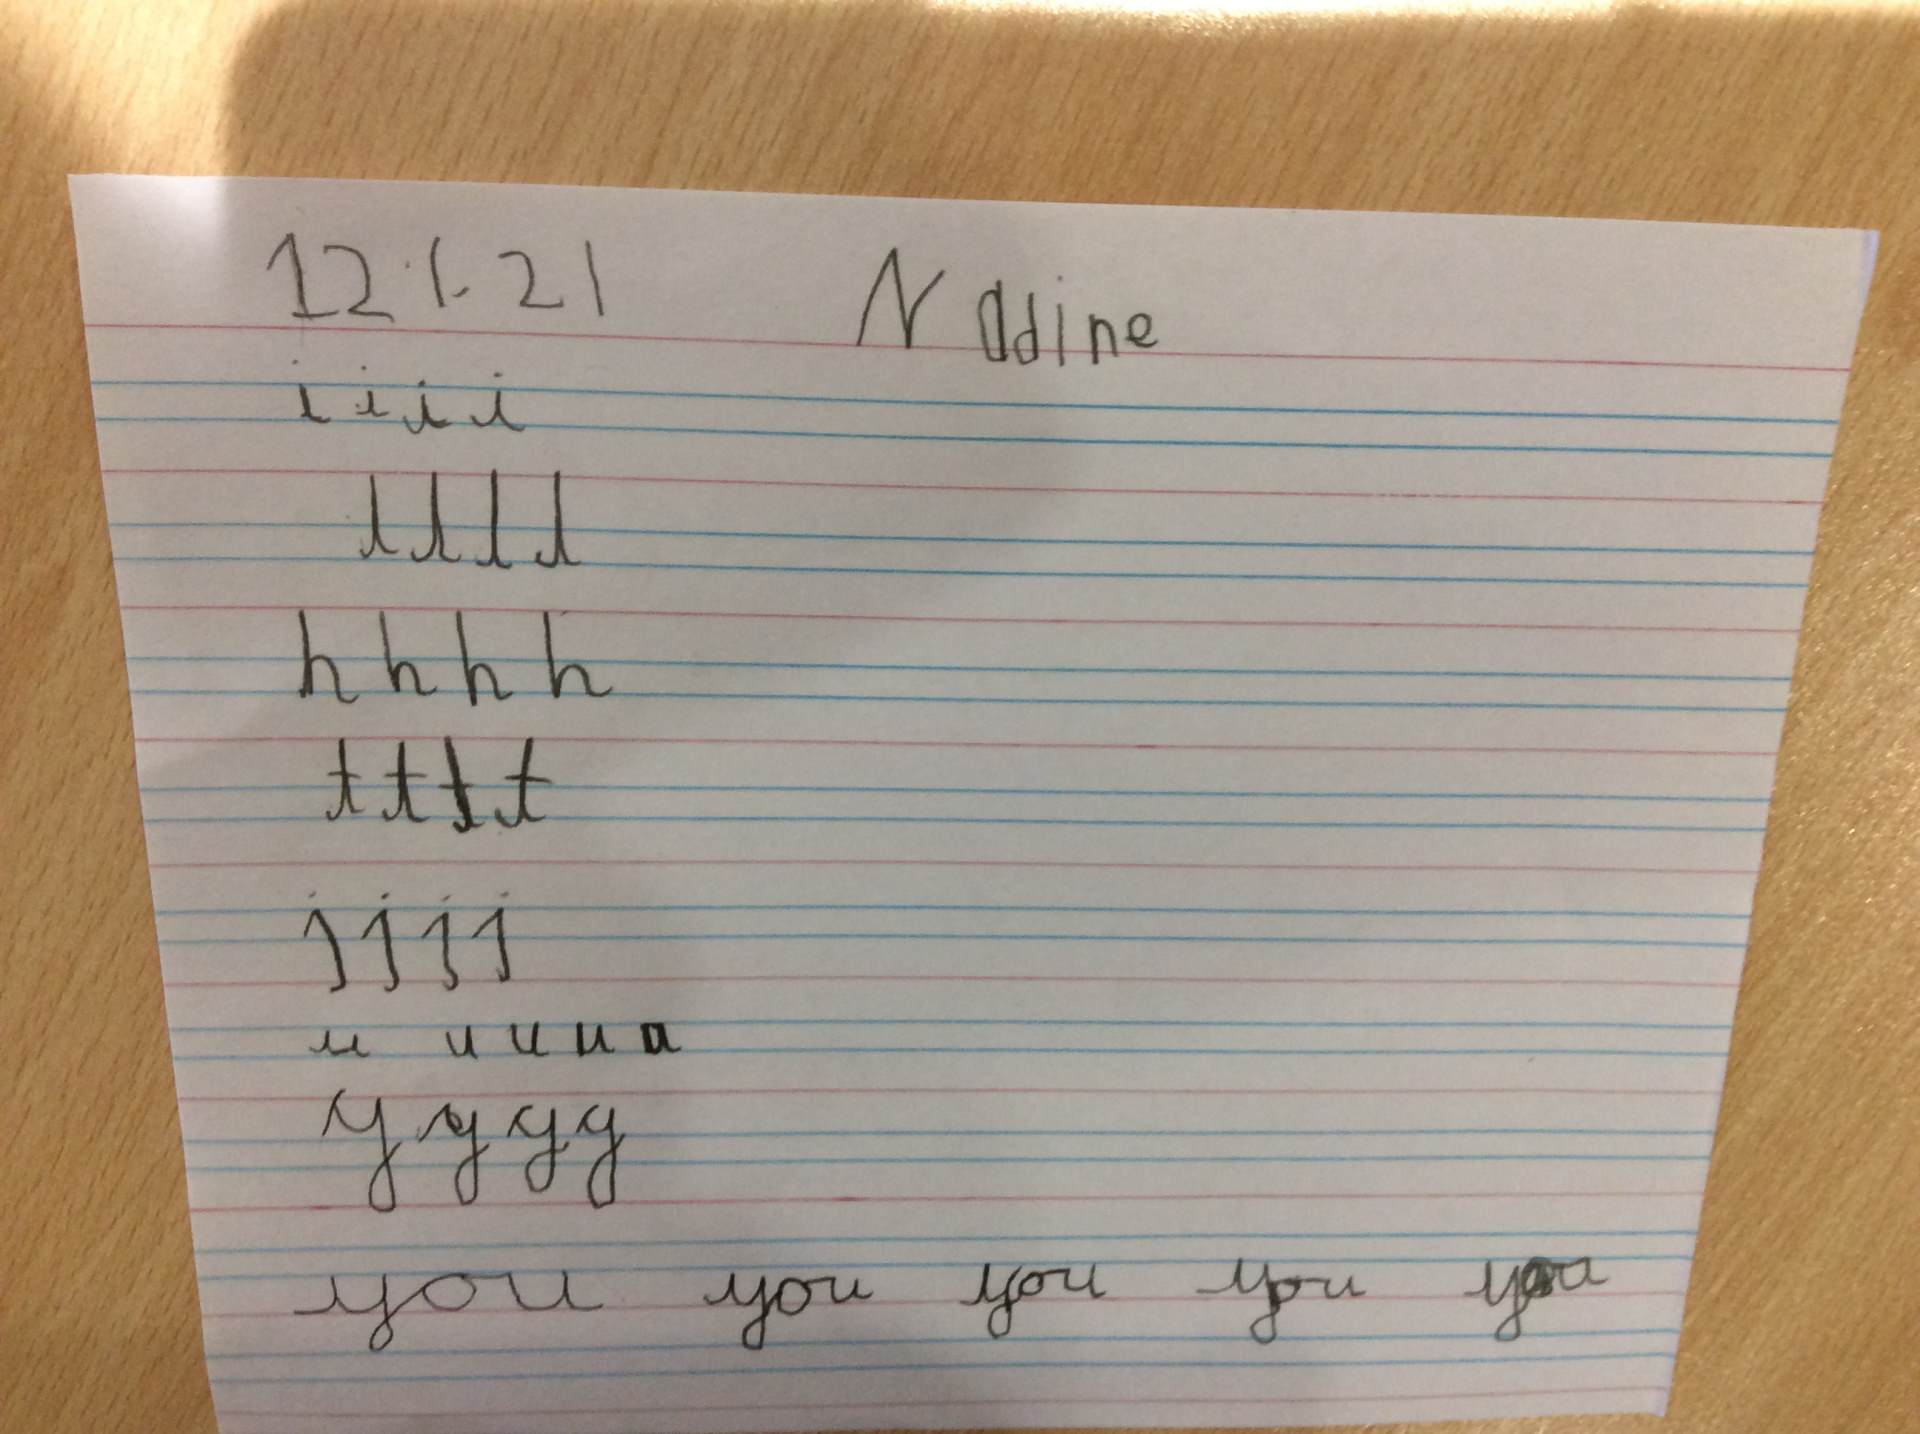 12.1.21 Nadine
i i i i
l l l l
h h h h
t t t t
j j j j
u u u u u
y y y y
you you you you you